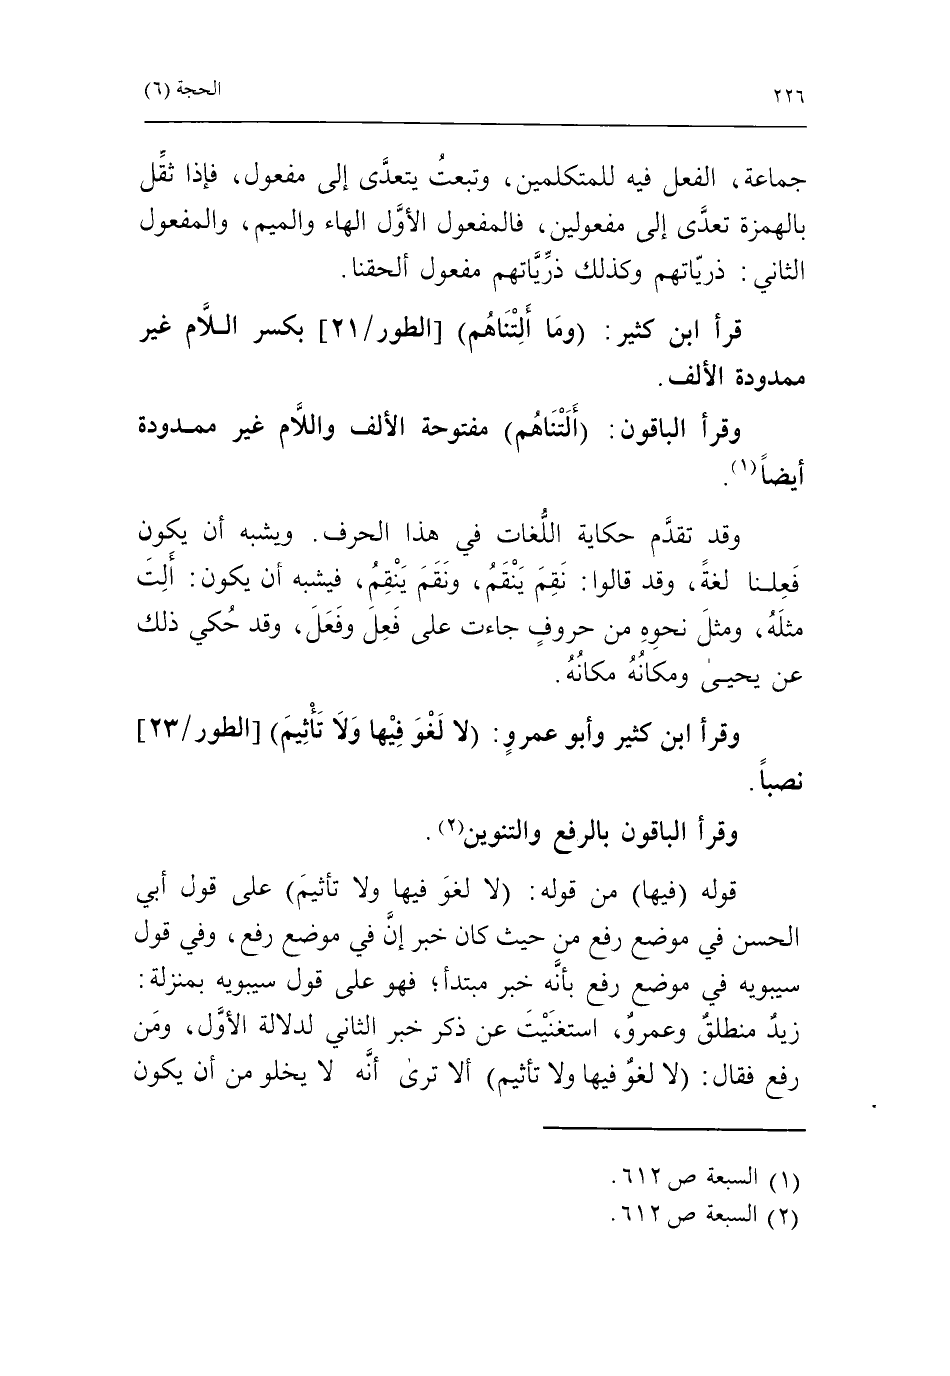 ٢٢٦ الحجة (٦)
جماعة، الفعل فيه للمتكلمين، وتبعتُ يتعدَّى إلى مفعول، فإذا ثقِّل
بالهمزة تعدَّى إلى مفعولين، فالمفعول الأوَّل الهاء والميم، والمفعول
الثاني: ذريّاتهم وكذلك ذرِّيَّاتهم مفعول ألحقنا.
قرأ ابن كثير: (ومَا أَلِتْنَاهُم) [الطور/٢١] بكسر اللَّام غير
ممدودة الألف.
وقرأ الباقون: (أَلَتْنَاهُم) مفتوحة الألف واللَّام غير ممدودة
أيضاً(١).
وقد تقدَّم حكاية اللُّغات في هذا الحرف. ويشبه أن يكون
فَعِلنا لغةً، وقد قالوا: نَقِمَ يَنْقَمُ، ونَقَمَ يَنْقِمُ، فيشبه أن يكون: أَلِتَ
مثلَهُ، ومثلَ نحوِهِ من حروفٍ جاءت على فَعِلَ وفَعَلَ، وقد حُكي ذلك
عن يحيىٰ ومكانُهُ مكانُهُ.
وقرأ ابن كثير وأبو عمروٍ: (لا لَغْوَ فِيْها وَلَا تَأْثِيمَ) [الطور/٢٣]
نصباً.
وقرأ الباقون بالرفع والتنوين(٢).
قوله (فيها) من قوله: (لا لغوَ فيها ولا تأثيمَ) على قول أبي
الحسن في موضع رفع من حيث كان خبر إنَّ في موضع رفع، وفي قول
سيبويه في موضع رفع بأنَّه خبر مبتدأ؛ فهو على قول سيبويه بمنزلة:
زيدٌ منطلقٌ وعمروٌ، استغنَيْتَ عن ذكر خبر الثاني لدلالة الأوَّل، ومَن
رفع فقال: (لا لغوٌ فيها ولا تأثيم) ألا ترىٰ أنَّه لا يخلو من أن يكون
(١) السبعة ص ٦١٢.
(٢) السبعة ص ٦١٢.